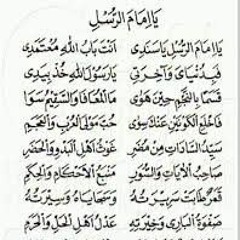 يَا اِمَامَ الرُّسْلِ
يَا اِمَامَ الرُّسْلِ يَا سَنَدِي اَنْتَ بَابُ اللهِ مُعْتَمَدِي
فَبِدُنْيَايَ وَآخِرَتِي يَارَسُوْلَ اللهِ خُذْ بِيَدِي
قَسَمًا بِالنَّجْمِ حِيْنَ هَوَى مَا الْمُعَافَى وَالسَّقِيْمُ سَوَا
فَاخْلَعِ الْكَوْنَيْنِ عَنْكَ سِوَى حُبِّ مَوْلَى الْعُرْبِ وَالْعَجَمِ
سَيِّدُ السَّادَاتِ مِنْ مُضَرٍ غَوْثُ اَهْلِ الْبَدْوِ وَالْحَضَرِ
صَاحِبُ الْاٰيَاتِ وَالسُّوَرِ مَنْبَعُ الْاَحْكَامِ وَالْحِكَمِ
قَمَرٌ طَابَتْ سَرِيْرَتُهُ وَسَجَايَاهُ وَسِيْرَتُهُ
صَفْوَةُ الْبَارِي وَخِيْرَتُهُ عَدْلُ اَهْلِ الْحِلِّ وَالْحَرَمِ